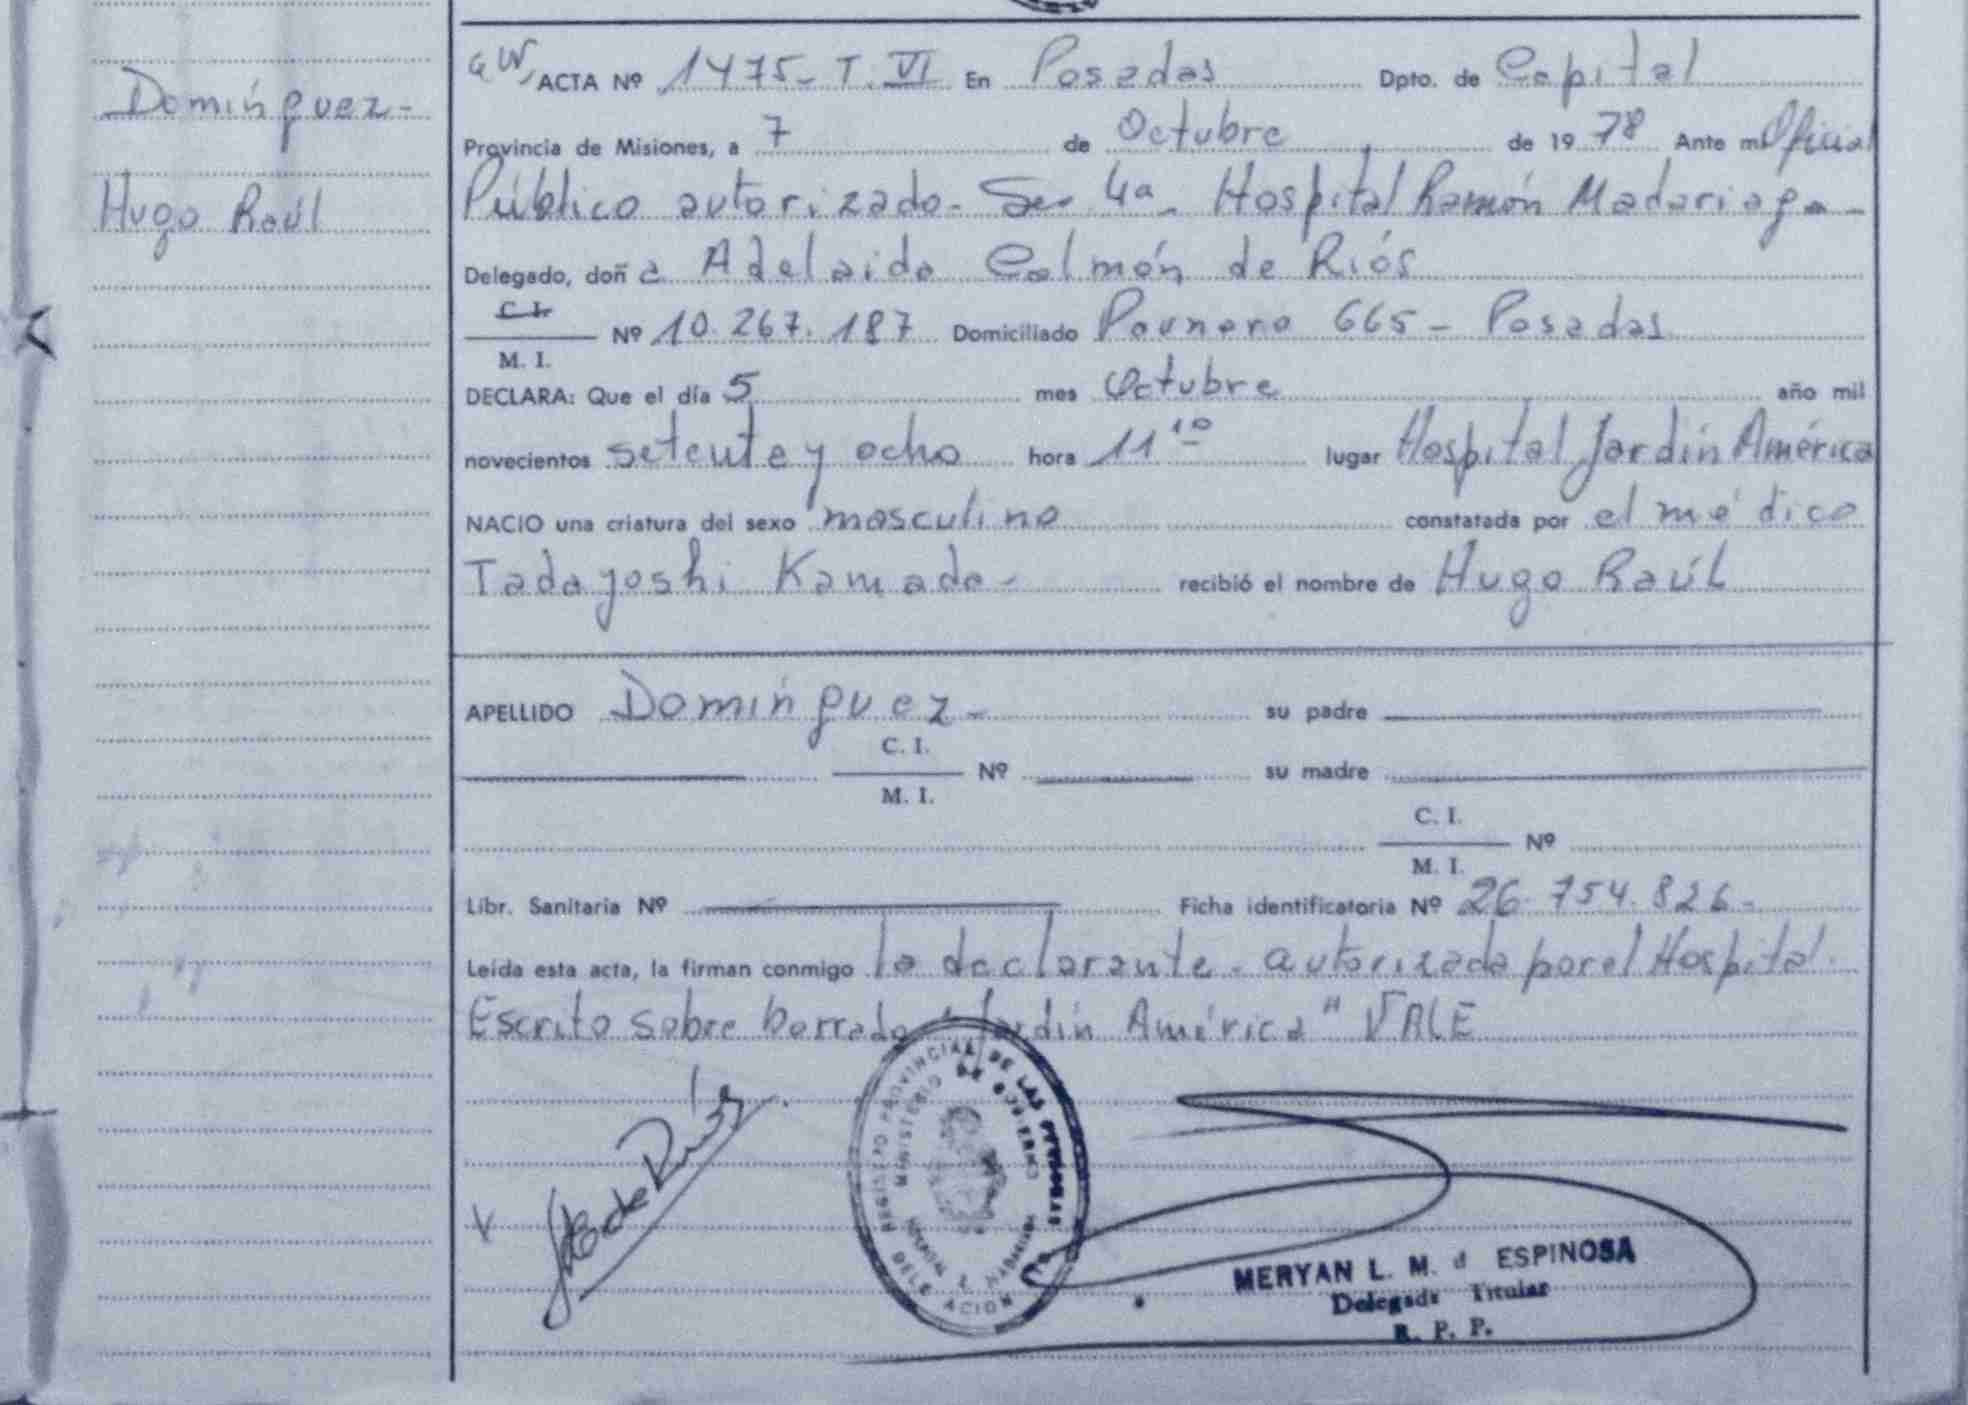 Domínguez-
Hugo Raúl
ACTA Nº 1475- T. VI En Posadas Dpto. de Capital
Provincia de Misiones, a 7 de Octubre de 1978 Ante mi Oficial
Público autorizado- Sec 4a- Hospital Ramón Madariaga-
Delegado, doña Adelaida Colmán de Ríos
C. I.
Nº 10.267.187 Domiciliado Pounero 665 - Posadas
M. I.
DECLARA: Que el día 5 mes Octubre año mil
novecientos setenta y ocho hora 11 10 lugar Hospital Jardín América
NACIO una criatura del sexo masculino constatada por el médico
Tadayoshi Kamada- recibió el nombre de Hugo Raúl
APELLIDO Domínguez- su padre
C. I.
Nº su madre
M. I.
C. I.
Nº
M. I.
Libr. Sanitaria Nº Ficha identificatoria Nº 26.754.826-
Leída esta acta, la firman conmigo la declarante- autorizada por el Hospital.
Escrito sobre borrado "Jardín América" VALE
REGISTRO PROVINCIAL DE LAS PERSONAS
MINISTERIO DE GOBIERNO
HOSPITAL R. MADARIAGA
DELEGACION
de Ríos
MERYAN L. M. d ESPINOSA
Delegada Titular
R. P. P.